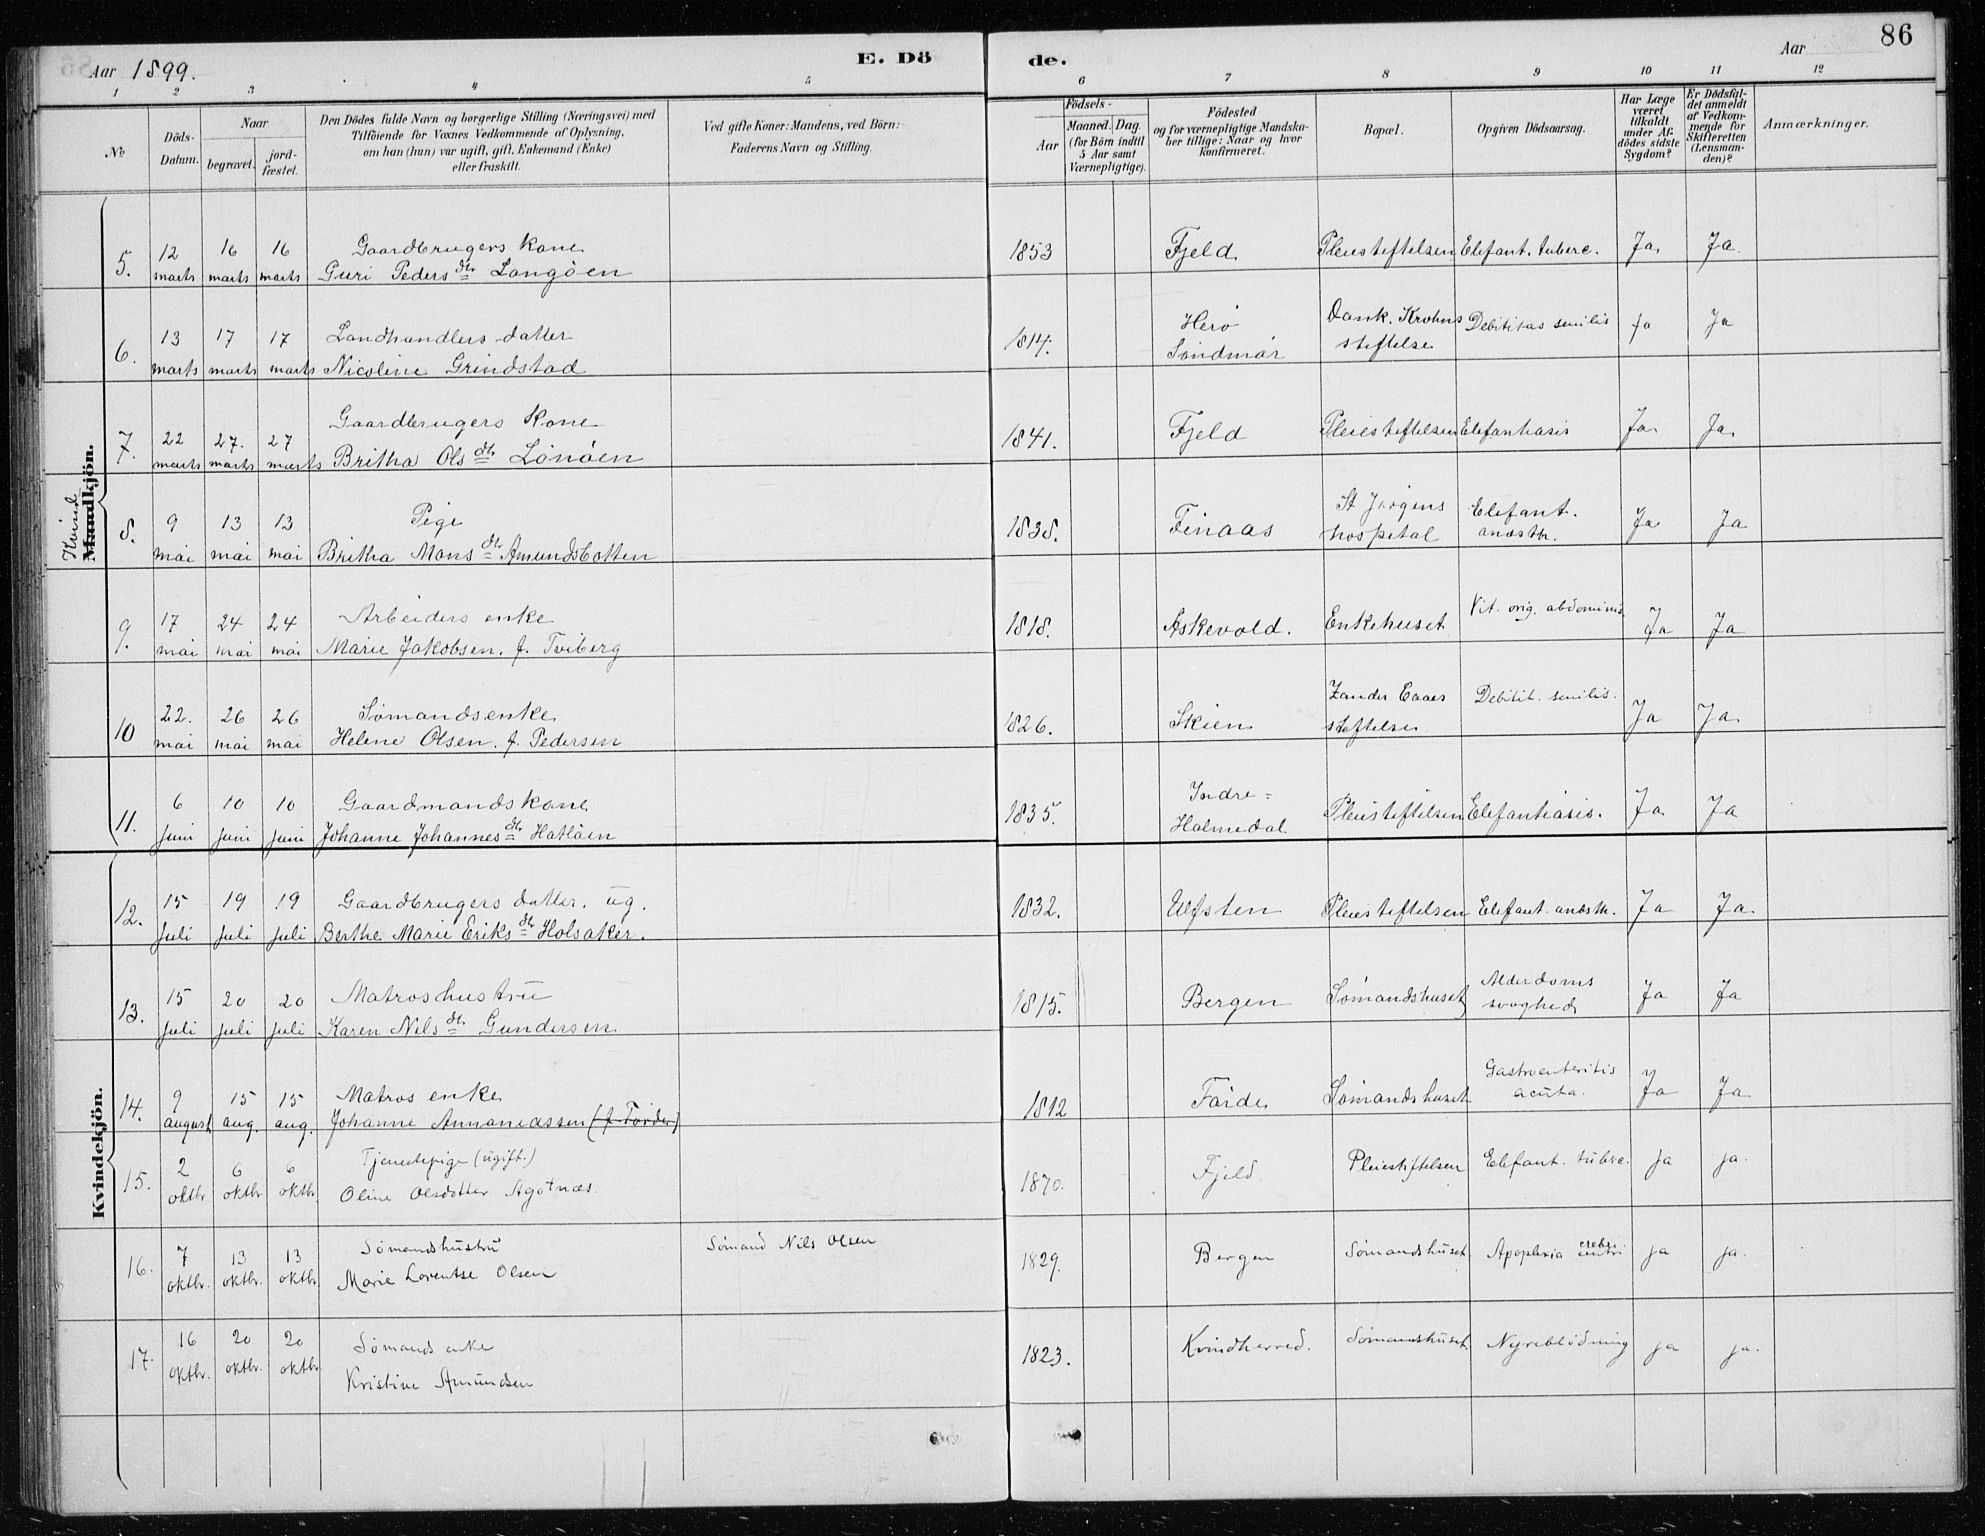 Aar 1899.
E. Dö
de.
Aar
86
1 2 3 4 5 6 7 8 9 10 11 12
No
Döds-Datum.
Naar
begravet.
jord-fæstet.
Den Dödes fulde Navn og borgerlige Stilling (Næringsvei) med
Tilföiende for Voxnes Vedkommende af Oplysning,
om han (hun) var ugift, gift, Enkemand (Enke)
eller fraskilt.
Ved gifte Koner: Mandens, ved Börn:
Faderens Navn og Stilling.
Födsels-
Aar
Maaned. Dag.
(for Börn indtil
5 Aar samt
Værnepligtige).
Födested
og for værnepligtige Mandska-
ber tillige: Naar og hvor
konfirmeret.
Bopæl.
Opgiven Dödsaarsag.
Har Læge
været
tilkaldt
under Af-
dödes sidste
Sygdom?
Er Dödsfal-
det anmeldt
af Vedkom-
mende for
Skifteretten
(Lensman-
den)?
Anmærkninger.
Kvinde
Mandkjön.
5. 12 marts 16 marts 16 marts Gaardbrugers Kone
Guri Peders dtr Langöen 1853 Fjeld Pleiestiftelsen Elefant. tuberc. Ja Ja
6. 13 marts 17 marts 17 marts Landhandlers datter
Nicoline Grindstad 1814. Herö Söndmör Dank. Krohns stiftelse Debilitas senilis Ja Ja
7. 22 marts 27. marts 27 marts Gaardbrugers Kone
Britha Ols dtr Lönöen 1841. Fjeld Pleiestiftelsen Elefantiasis Ja Ja
8. 9 mai 13 mai 13 mai Pige
Britha Mons dtr Amundsbotten 1838. Finaas St Jørgens hospital Elefant. anæsth. Ja Ja
9. 17 mai 24 mai 24 mai Arbeiders enke
Marie Jakobsen. f. Tviberg 1818. Askevold. Enkehuset Vit. org. abdominis Ja Ja
10 22. mai 26 mai 26 mai Sömandsenke
Helene Olsen. f. Pedersen 1826. Skien Zander Kaaes stiftelse Debilit. senilis. Ja Ja
11. 6 juni 10 juni 10 juni Gaardmands kone
Johanne Johannes dtr Hatlöen 1835. Indre=Holmedal Pleiestiftelsen Elefantiasis. Ja Ja
Kvindekjön.
12. 15 juli 19 juli 19 juli Gaardbrugers datter. ug.
Berthe Marie Eriks dtr Holsaker. 1832. Ulfsten Pleiestiftelsen Elefant. anæsth. Ja Ja
13. 15 juli 20 juli 20 juli Matroshustru
Karen Nils dtr Gundersen 1815. Bergen Sömandshuset Alderdoms svaghed Ja Ja
14. 9 august 15 aug. 15 aug. Matros enke
Johanne Annaneassen (f. Förde) 1812 Förde Sömandshuset Gastroenteritis acuta. Ja Ja
15. 2 oktbr 6 oktbr 6 oktbr Tjenestepige (ugift.)
Oline Olsdatter Agotnæs. 1870. Fjeld Pleiestiftelsen Elefant. tuberc. ja ja.
16. 7 oktbr. 13 oktbr. 13 oktbr. Sömandshustru
Marie Lorentse Olsen Sömand Nils Olsen 1829. Bergen Sömandshuset Apoplexia cerebri ja ja.
17. 16 oktbr. 20 oktbr. 20 oktbr. Sömands enke
Kristine Amundsen 1823. Kvindherred. Sömandshuset Nyreblödning ja ja.